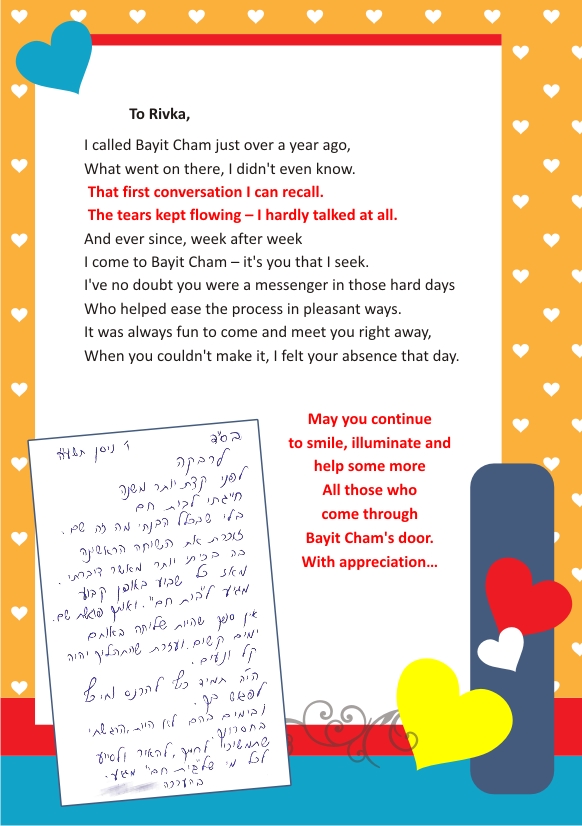 To Rivka,
I called Bayit Cham just over a year ago,
What went on there, I didn't even know.
That first conversation I can recall.
The tears kept flowing – I hardly talked at all.
And ever since, week after week
I come to Bayit Cham – it's you that I seek.
I've no doubt you were a messenger in those hard days
Who helped ease the process in pleasant ways.
It was always fun to come and meet you right away,
When you couldn't make it, I felt your absence that day.
May you continue
to smile, illuminate and
help some more
All those who
come through
Bayit Cham's door.
With appreciation...
בס"ד
ניסן
לרבקה
לפני קצת יותר משנה
חייגתי לבית חם
בלי שבכלל הבנתי מה זה שם.
זוכרת את השיחה הראשונה
בה בכיתי יותר מאשר דיברתי.
מאז כל שבוע באופן קבוע
מגיע ל"בית חם". ואותך פוגשת שם.
אין ספק שהיית שליחה באותם
ימים קשים. ועזרת שהתהליך יהיה
קל ונעים.
היה תמיד כיף להיכנס
לפגוש בך.
ובימים בהם לא היית, הרגשתי
בחסרונך.
שתמשיכי לחייך, להאיר ולסייע
לכל מי שלבית חם" מגיע.
בהערכה